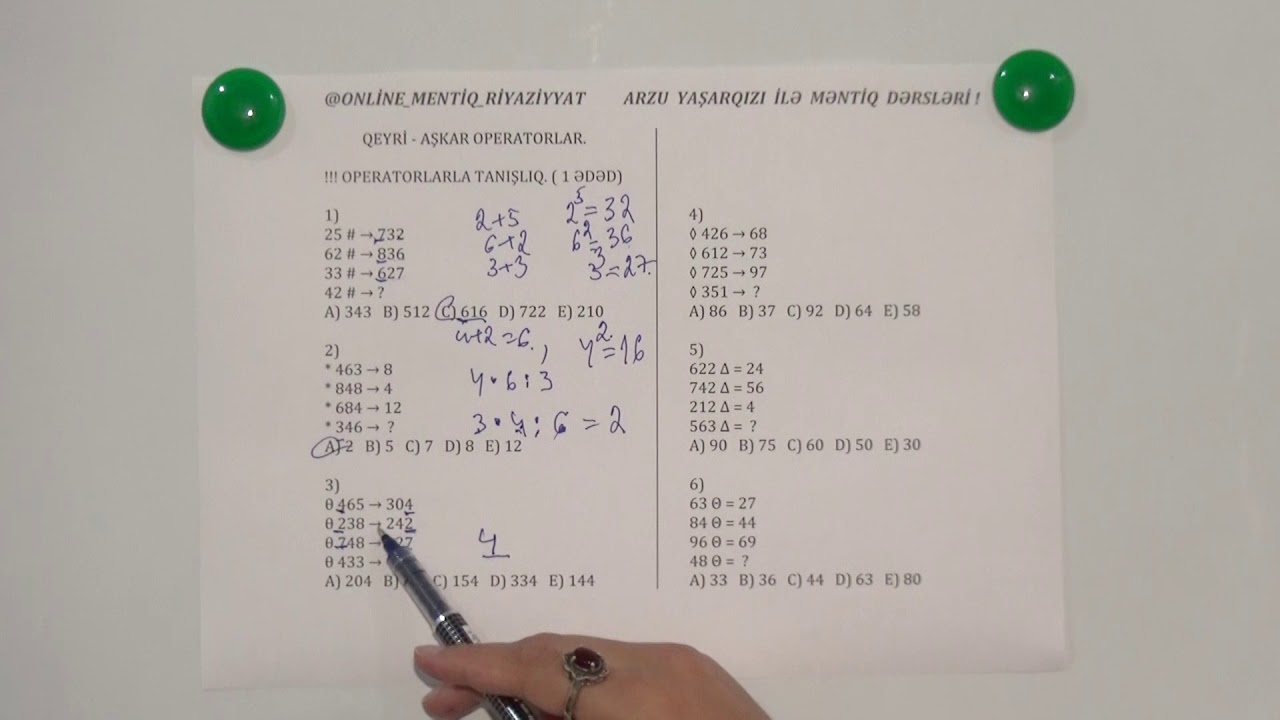 @ONLİNE_MENTİQ_RİYAZİYYAT ARZU YAŞARQIZI İLƏ MƏNTİQ DƏRSLƏRİ !
QEYRİ - AŞKAR OPERATORLAR.
!!! OPERATORLARLA TANIŞLIQ. ( 1 ƏDƏD)
1)
25 # → 732 2+5 2⁵=32
62 # → 836 6+2 6²=36
33 # → 627 3+3 3³=27.
42 # → ?
A) 343 B) 512 C) 616 D) 722 E) 210
4+2=6. , 4²=16
2)
* 463 → 8
* 848 → 4 4·6:3
* 684 → 12
* 346 → ? 3·4:6=2
A) 2 B) 5 C) 7 D) 8 E) 12
3)
θ 465 → 304
θ 238 → 242
θ 748 → 27 4
θ 433 →
A) 204 B) C) 154 D) 334 E) 144
4)
◊ 426 → 68
◊ 612 → 73
◊ 725 → 97
◊ 351 → ?
A) 86 B) 37 C) 92 D) 64 E) 58
5)
622 Δ = 24
742 Δ = 56
212 Δ = 4
563 Δ = ?
A) 90 B) 75 C) 60 D) 50 E) 30
6)
63 Θ = 27
84 Θ = 44
96 Θ = 69
48 Θ = ?
A) 33 B) 36 C) 44 D) 63 E) 80